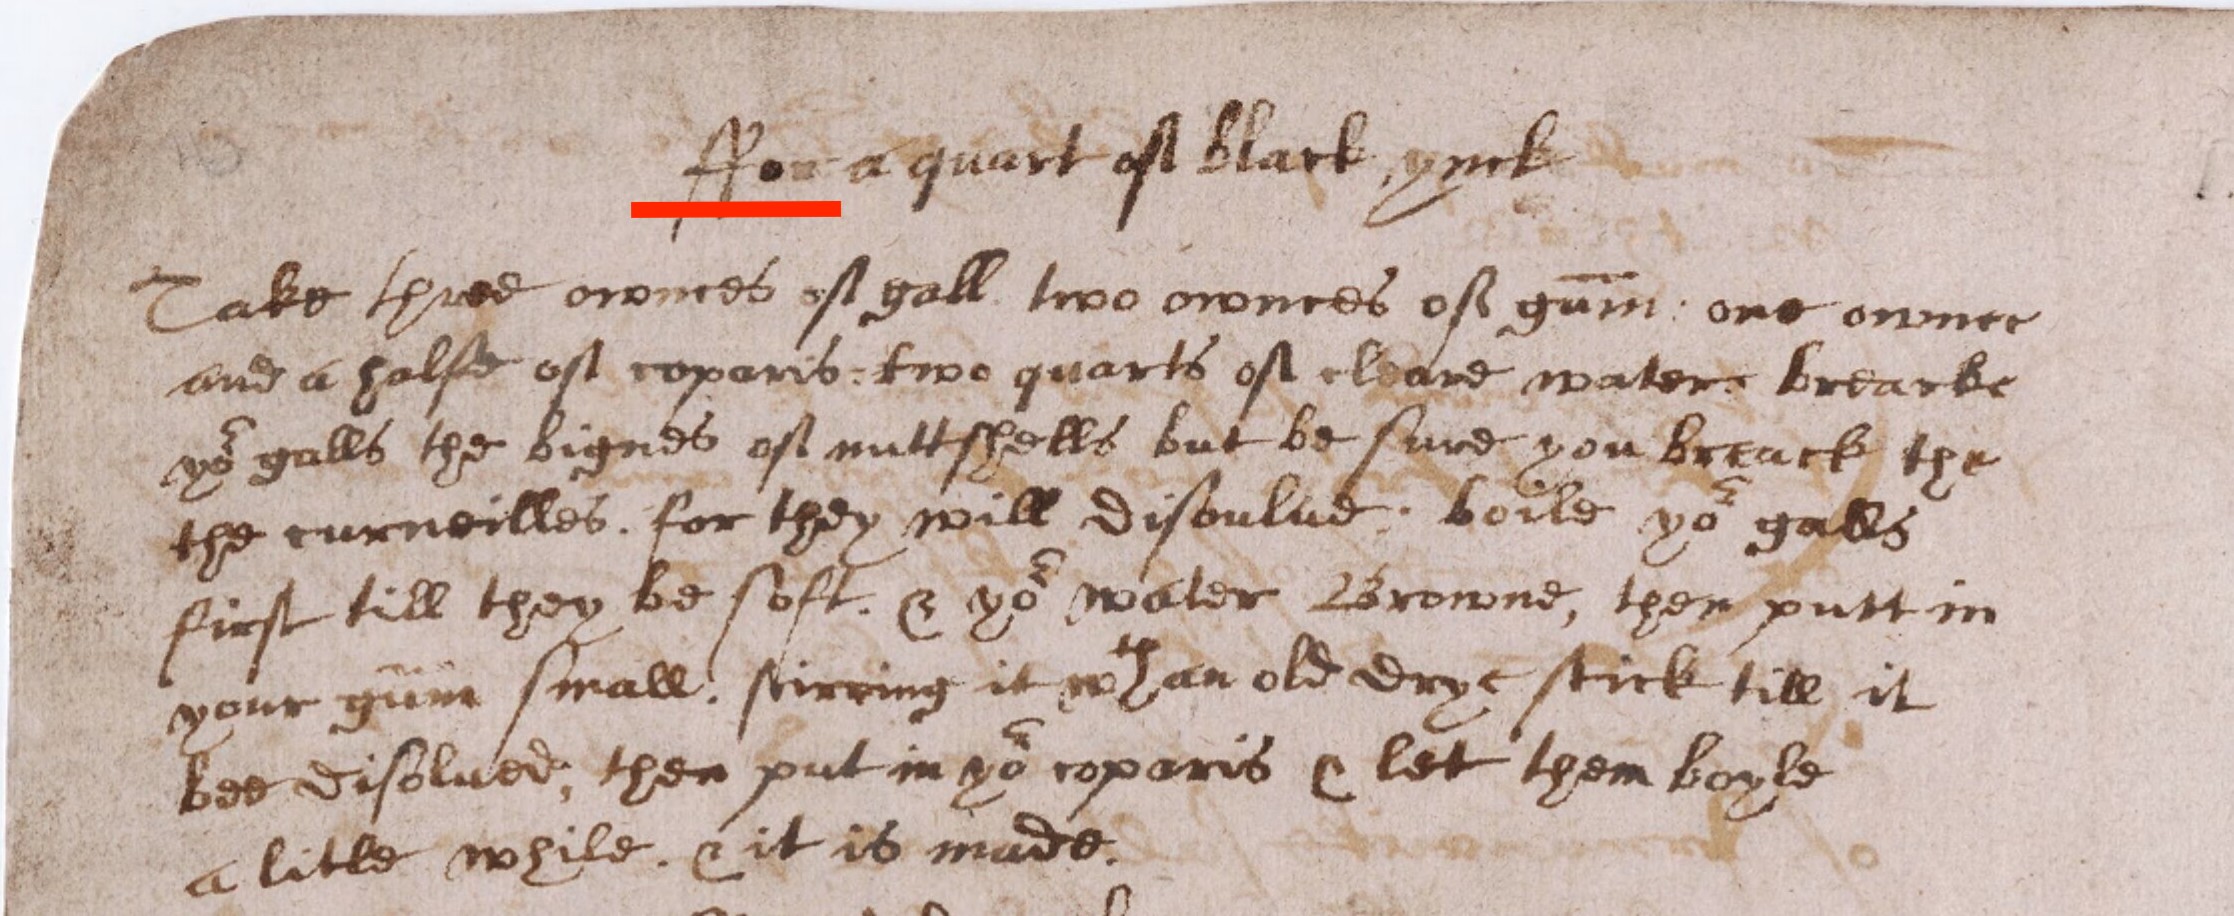 ffor a quart of black ynck
Take three ownces of gall. two ownces of gum̄. one ownce
and a halfe of coparis. two quarts of cleare water. breacke
yoʳ galls the bignes of nuttshells but be sure you breack the
the curneilles. for they will disoulue. boile yoʳ galls
first till they be soft. & yoʳ water Browne, then putt in
your gum̄ small. stirring it wᵗʰ an old drye stick till it
bee disolued, then put in yoʳ coparis & let them boyle
a litle while. & it is made.